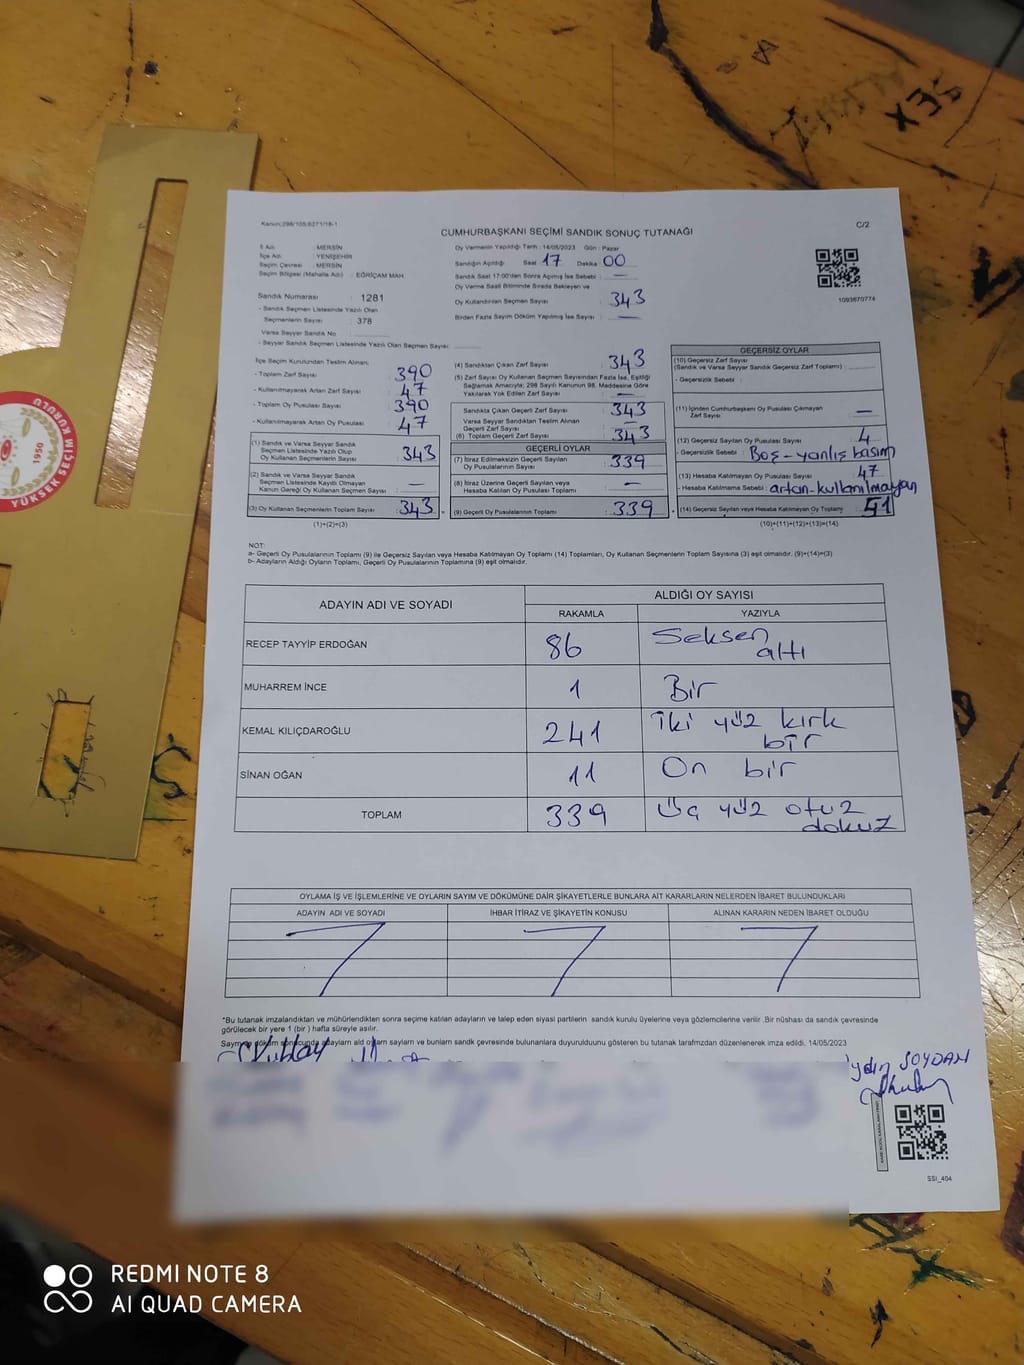 Kanun:298/105;6271/18-1
C/2
CUMHURBAŞKANI SEÇİMİ SANDIK SONUÇ TUTANAĞI
İl Adı : MERSİN
İlçe Adı : YENİŞEHİR
Seçim Çevresi : MERSİN
Seçim Bölgesi (Mahalle Adı) : EĞRİÇAM MAH.
Sandık Numarası : 1281
- Sandık Seçmen Listesinde Yazılı Olan
Seçmenlerin Sayısı : 378
Varsa Seyyar Sandık No
- Seyyar Sandık Seçmen Listesinde Yazılı Olan Seçmen Sayısı
Oy Vermenin Yapıldığı Tarih : 14/05/2023 Gün : Pazar
Sandığın Açıldığı Saat 17 Dakika 00
Sandık Saat 17:00'den Sonra Açılmış İse Sebebi : —
Oy Verme Saati Bitiminde Sırada Bekleyen ve
Oy Kullandırılan Seçmen Sayısı : 343
Birden Fazla Sayım Döküm Yapılmış İse Sayısı : —
1093670774
İlçe Seçim Kurulundan Teslim Alınan;
- Toplam Zarf Sayısı : 390
- Kullanılmayarak Artan Zarf Sayısı : 47
- Toplam Oy Pusulası Sayısı : 390
- Kullanılmayarak Artan Oy Pusulası : 47
(1) Sandık ve Varsa Seyyar Sandık
Seçmen Listesinde Yazılı Olup
Oy Kullanan Seçmenlerin Sayısı : 343
(2) Sandık ve Varsa Seyyar Sandık
Seçmen Listesinde Kayıtlı Olmayan
Kanun Gereği Oy Kullanan Seçmen Sayısı : —
(3) Oy Kullanan Seçmenlerin Toplam Sayısı : 343
(1)+(2)=(3)
(4) Sandıktan Çıkan Zarf Sayısı : 343
(5) Zarf Sayısı Oy Kullanan Seçmen Sayısından Fazla İse, Eşitliği
Sağlamak Amacıyla; 298 Sayılı Kanunun 98. Maddesine Göre
Yakılarak Yok Edilen Zarf Sayısı : —
Sandıkta Çıkan Geçerli Zarf Sayısı : 343
Varsa Seyyar Sandıktan Teslim Alınan
Geçerli Zarf Sayısı : —
(6) Toplam Geçerli Zarf Sayısı : 343
GEÇERLİ OYLAR
(7) İtiraz Edilmeksizin Geçerli Sayılan
Oy Pusulalarının Sayısı : 339
(8) İtiraz Üzerine Geçerli Sayılan veya
Hesaba Katılan Oy Pusulası Toplamı : —
(9) Geçerli Oy Pusulalarının Toplamı : 339
GEÇERSİZ OYLAR
(10) Geçersiz Zarf Sayısı
(Sandık ve Varsa Seyyar Sandık Geçersiz Zarf Toplamı) :
- Geçersizlik Sebebi :
(11) İçinden Cumhurbaşkanı Oy Pusulası Çıkmayan
Zarf Sayısı : —
(12) Geçersiz Sayılan Oy Pusulası Sayısı : 4
- Geçersizlik Sebebi : Boş-yanlış basım
(13) Hesaba Katılmayan Oy Pusulası Sayısı : 47
- Hesaba Katılmama Sebebi : artan-kullanılmayan
(14) Geçersiz Sayılan veya Hesaba Katılmayan Oy Toplamı : 51
(10)+(11)+(12)+(13)=(14)
NOT:
a- Geçerli Oy Pusulalarının Toplamı (9) ile Geçersiz Sayılan veya Hesaba Katılmayan Oy Toplamı (14) Toplamları, Oy Kullanan Seçmenlerin Toplam Sayısına (3) eşit olmalıdır. (9)+(14)=(3)
b- Adayların Aldığı Oyların Toplamı, Geçerli Oy Pusulalarının Toplamına (9) eşit olmalıdır.
ADAYIN ADI VE SOYADI
ALDIĞI OY SAYISI
RAKAMLA YAZIYLA
RECEP TAYYİP ERDOĞAN 86 Seksen altı
MUHARREM İNCE 1 Bir
KEMAL KILIÇDAROĞLU 241 iki yüz kırk bir
SİNAN OĞAN 11 On bir
TOPLAM 339 Üç yüz otuz dokuz
OYLAMA İŞ VE İŞLEMLERİNE VE OYLARIN SAYIM VE DÖKÜMÜNE DAİR ŞİKAYETLERLE BUNLARA AİT KARARLARIN NELERDEN İBARET BULUNDUKLARI
ADAYIN ADI VE SOYADI İHBAR İTİRAZ VE ŞİKAYETİN KONUSU ALINAN KARARIN NEDEN İBARET OLDUĞU
*Bu tutanak imzalandıktan ve mühürlendikten sonra seçime katılan adayların ve talep eden siyasi partilerin sandık kurulu üyelerine veya gözlemcilerine verilir .Bir nüshası da sandık çevresinde
görülecek bir yere 1 (bir ) hafta süreyle asılır.
14/05/2023
SOYDAN
SSI_404
YÜKSEK SEÇİM KURULU
1950
X35
REDMI NOTE 8
AI QUAD CAMERA